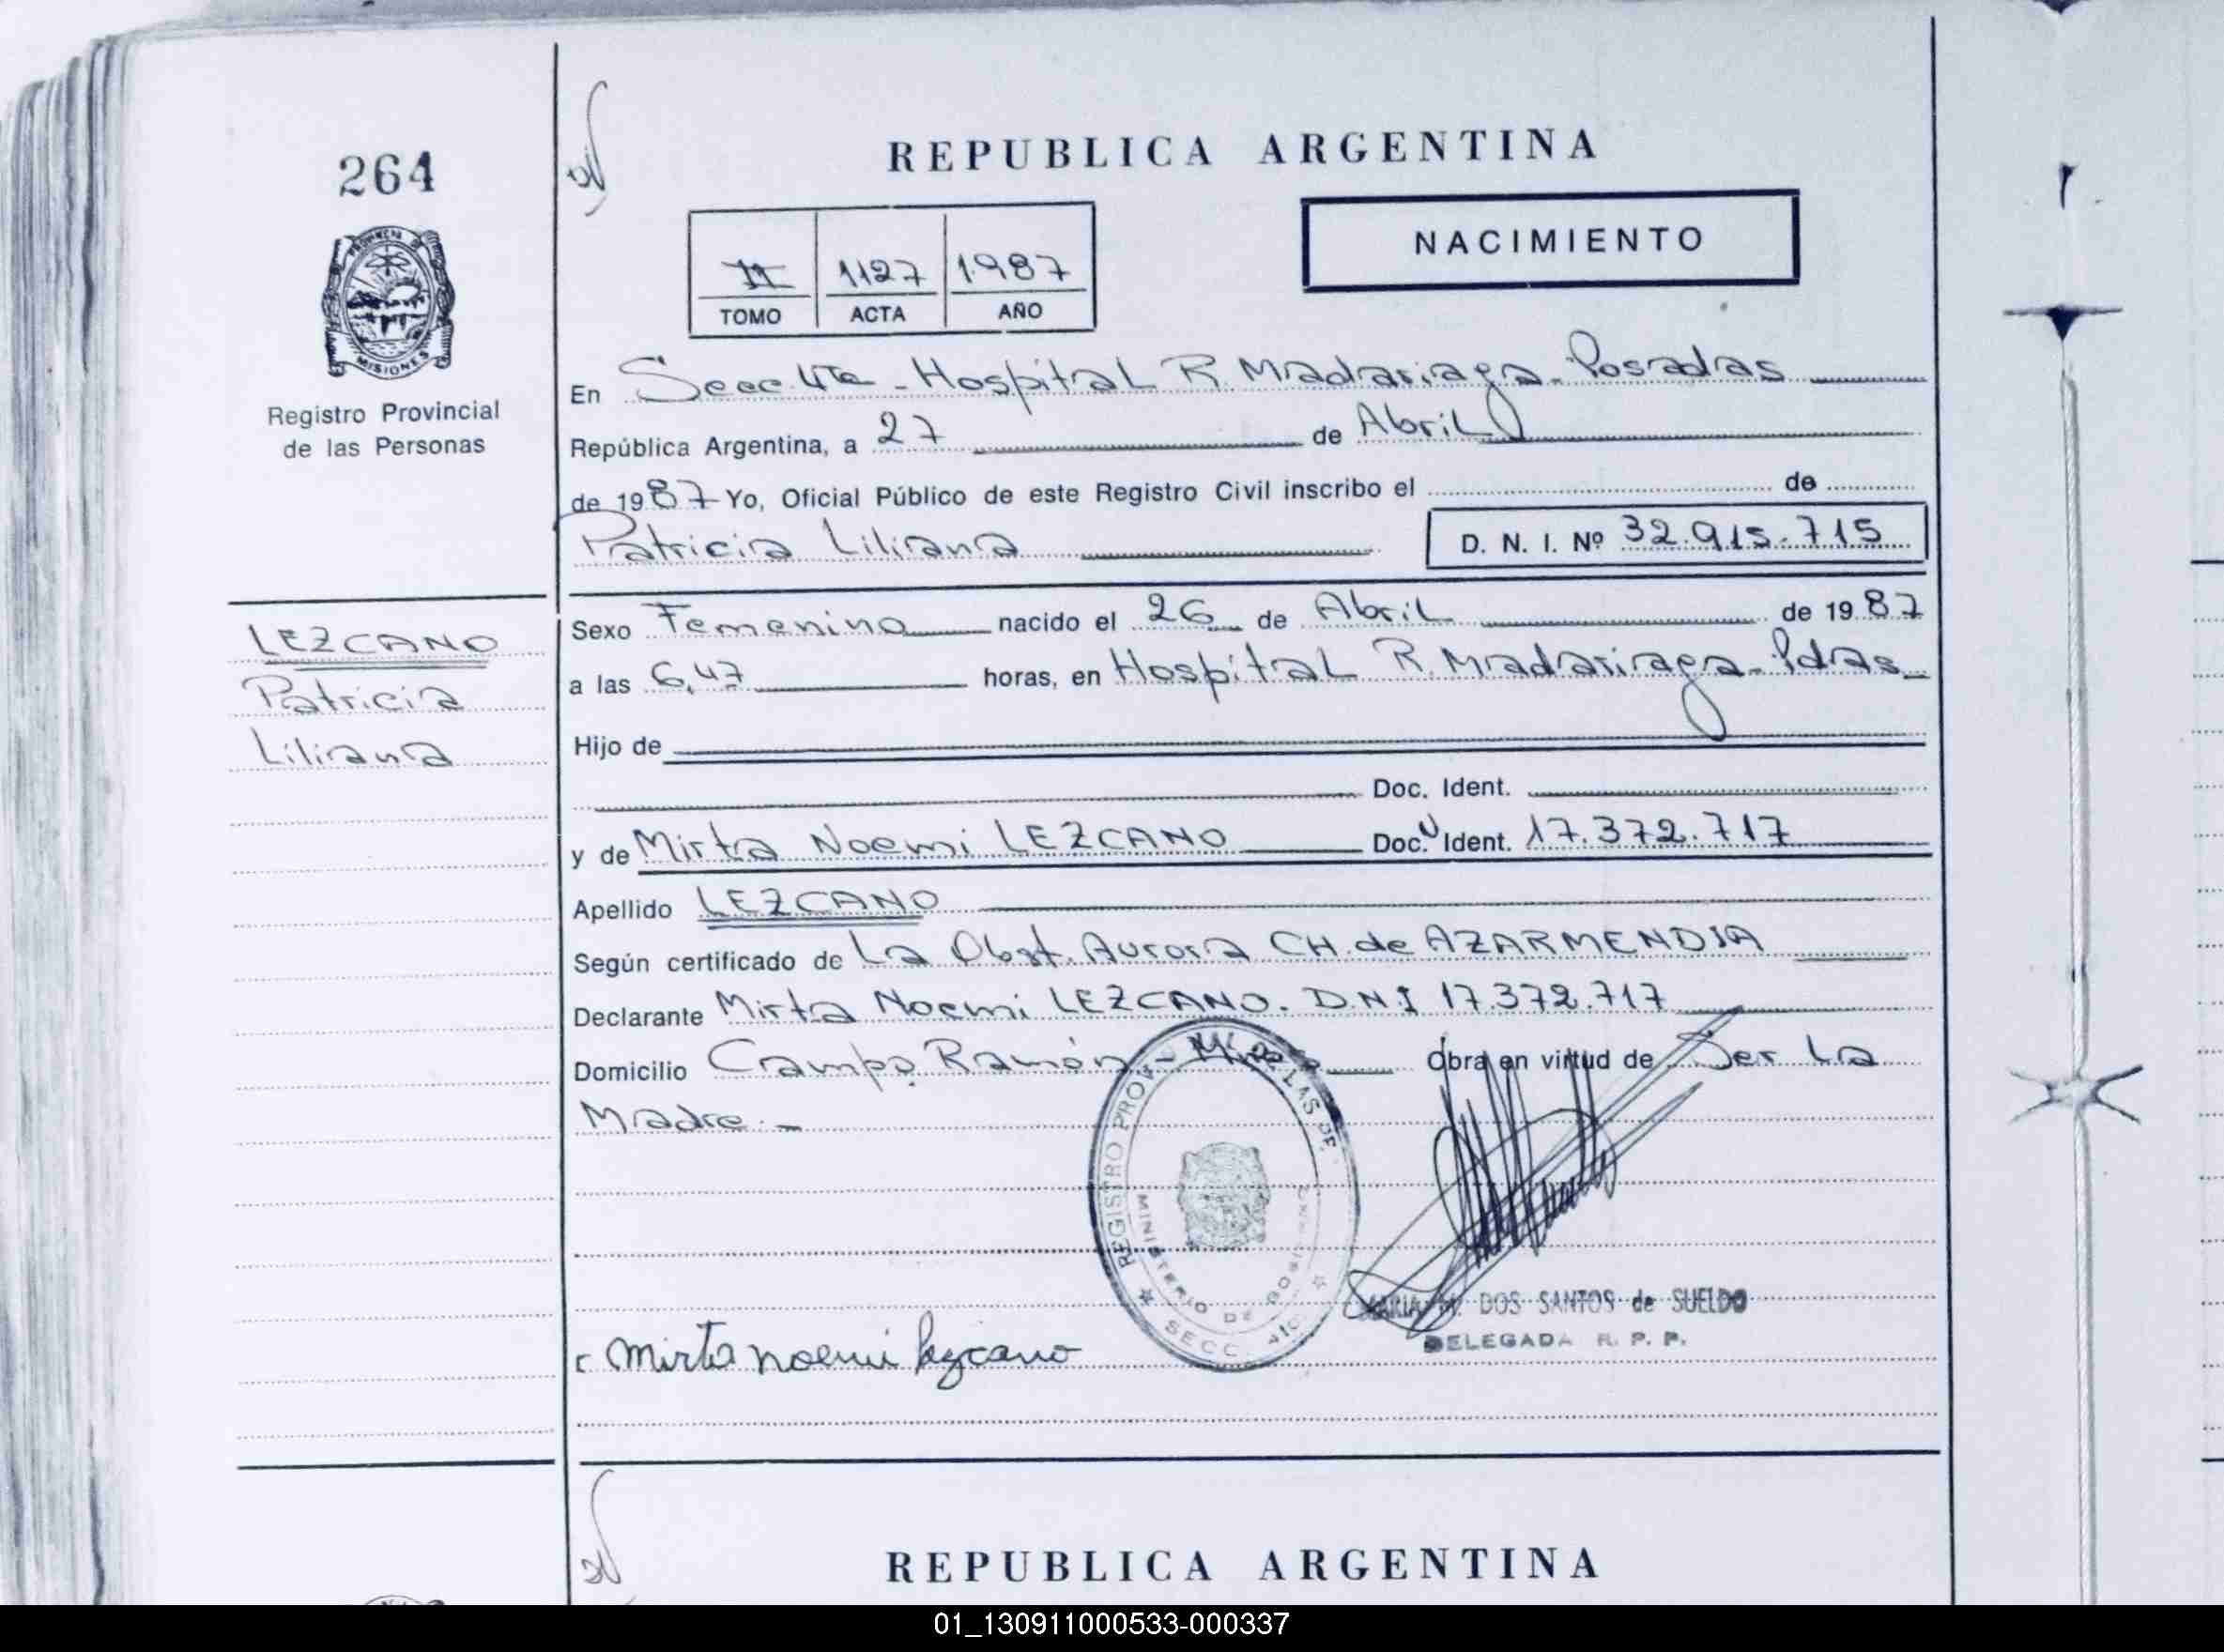 264
REPUBLICA ARGENTINA
NACIMIENTO
PROVINCIA D
MISIONES
Registro Provincial
de las Personas
II 1127 1987
TOMO ACTA AÑO
En Secc 4ta - Hospital R. Madariaga - Posadas
República Argentina, a 27 de Abril
de 1987 Yo, Oficial Público de este Registro Civil inscribo el de
Patricia Liliana D. N. I. Nº 32.915.715
LEZCANO
Patricia
Liliana
Sexo Femenino nacido el 26 de Abril de 1987
a las 6,47 horas, en Hospital R. Madariaga - Pdas
Hijo de
Doc. Ident.
y de Mirta Noemi LEZCANO Doc. Ident. 17.372.717
Apellido LEZCANO
Según certificado de La Obst. Aurora CH. de AZARMENDIA
Declarante Mirta Noemi LEZCANO. D.N.I 17.372.717
Domicilio Campo Ramón - Mnes Obra en virtud de Ser La
Madre. -
REGISTRO PROV LAS DE
MINISTERIO DE GOBI
SECC. 4ta
MARIA M. DOS SANTOS de SUELDO
DELEGADA R. P. P.
Mirta noemi lezcano
REPUBLICA ARGENTINA
01_130911000533-000337